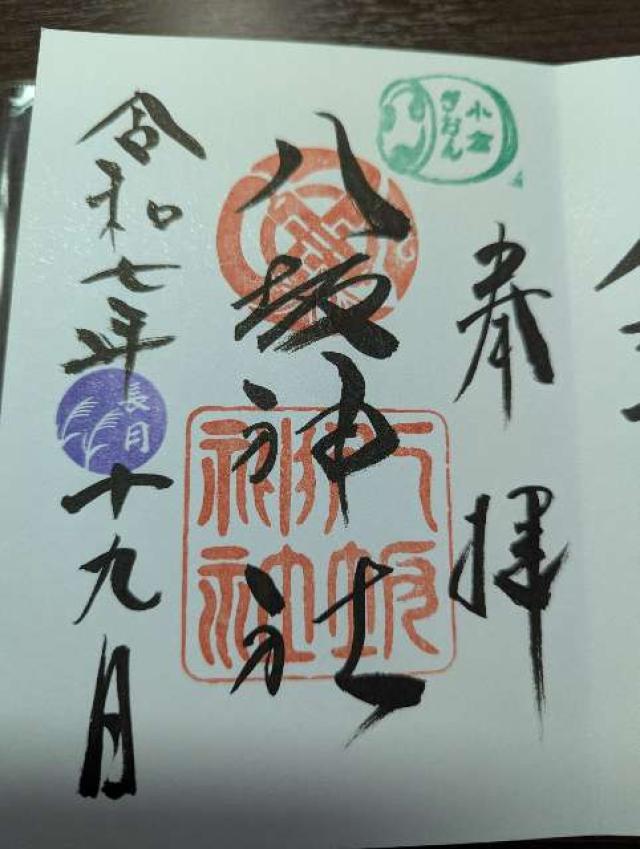 小倉
ぎおん
奉拝
八坂神社
八坂
神社
令和七年
長月
十九日